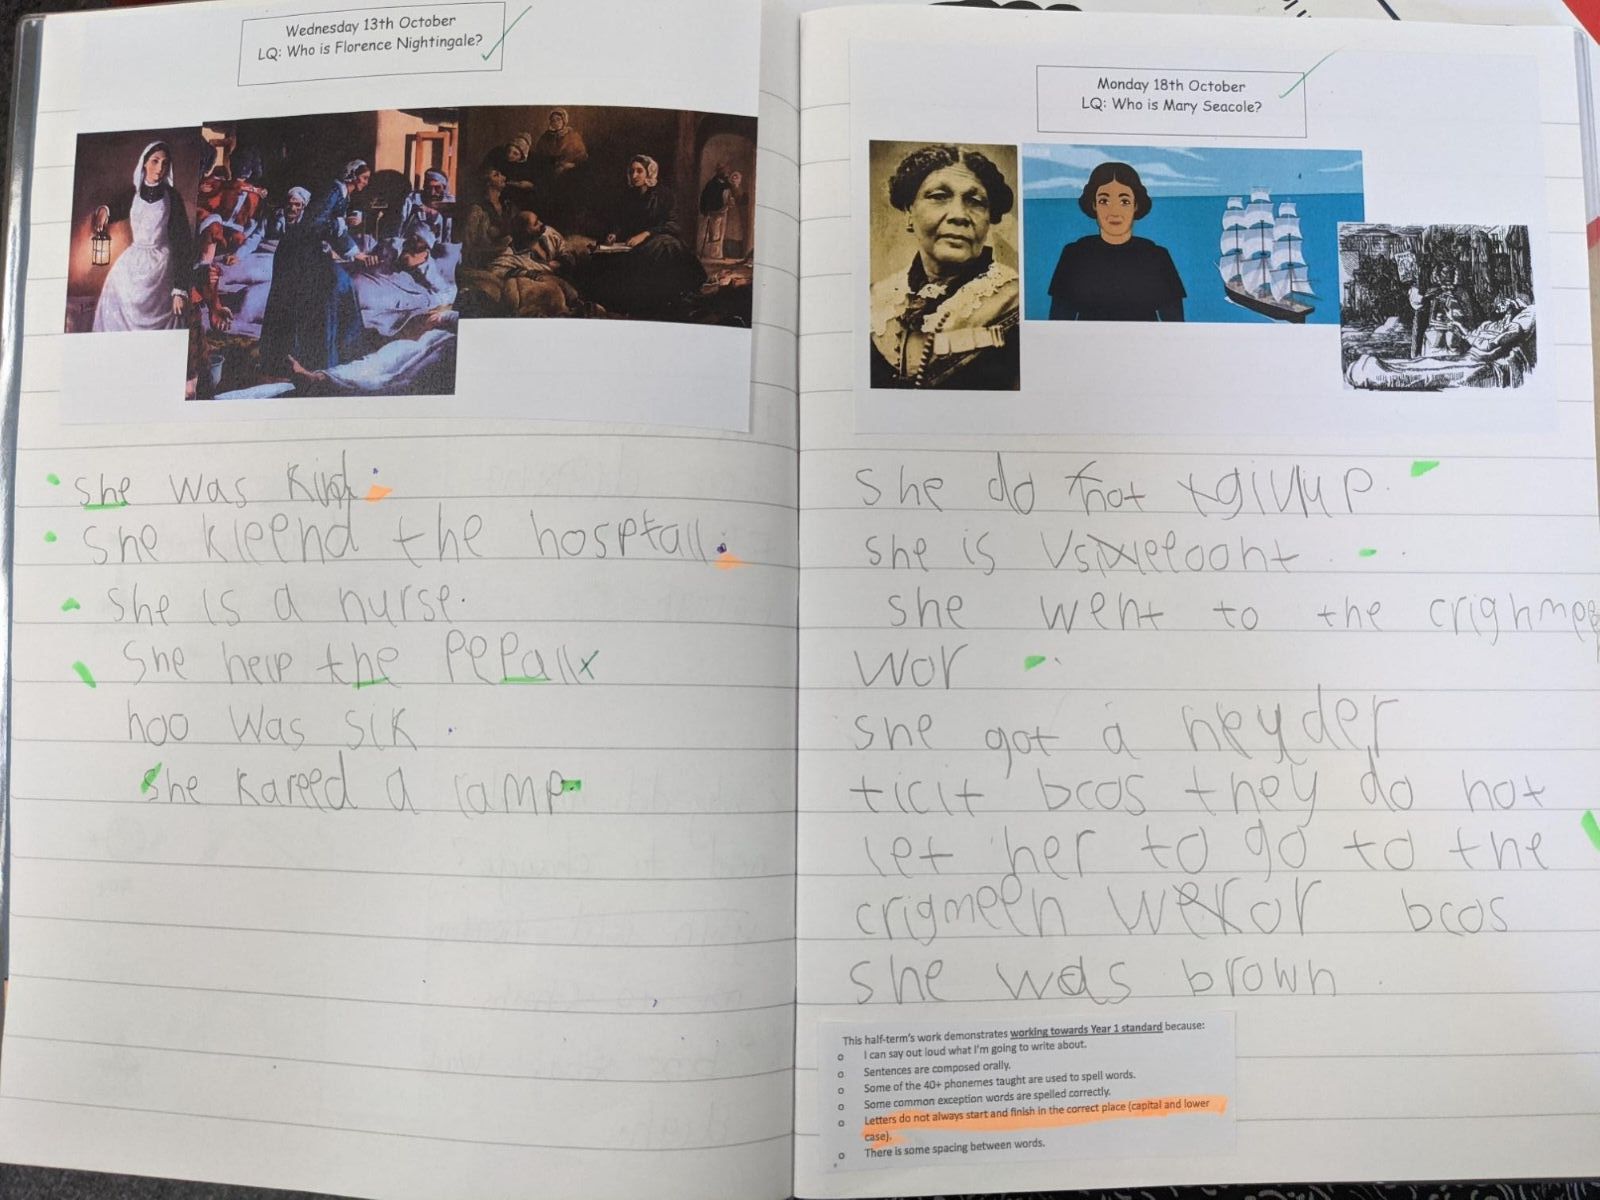 Wednesday 13th October
LQ: Who is Florence Nightingale?
she was kind.
she kleend the hosptall.
she is a nurse.
She help the pepall
hoo was sik.
she kareed a lamp
Monday 18th October
LQ: Who is Mary Seacole?
she do not givup.
she is
she went to the crighmee
wor
she got a neyder
ticit bcos they do not
let her to go to the
crigmeen bcos
she was brown.
This half-term's work demonstrates working towards Year 1 standard because:
o I can say out loud what I'm going to write about.
o Sentences are composed orally.
o Some of the 40+ phonemes taught are used to spell words.
o Some common exception words are spelled correctly.
o Letters do not always start and finish in the correct place (capital and lower
case).
o There is some spacing between words.